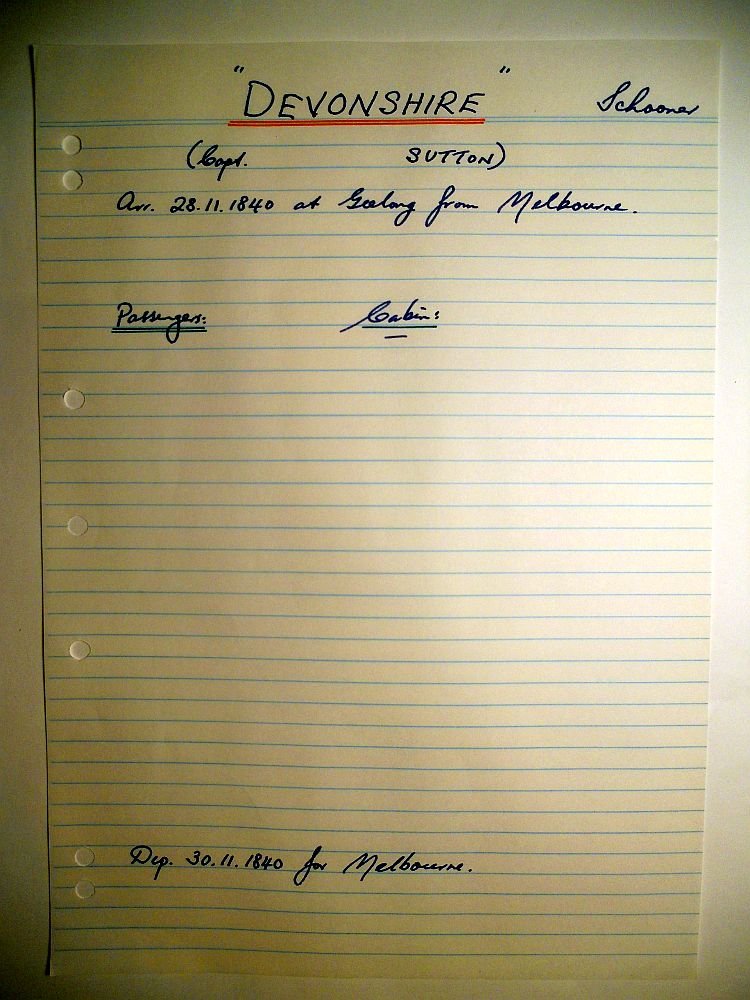 "DEVONSHIRE" Schooner
(Capt. SUTTON)
Arr. 28.11.1840 at Geelong from Melbourne.
Passengers: Cabin:
Dep. 30.11.1840 for Melbourne.